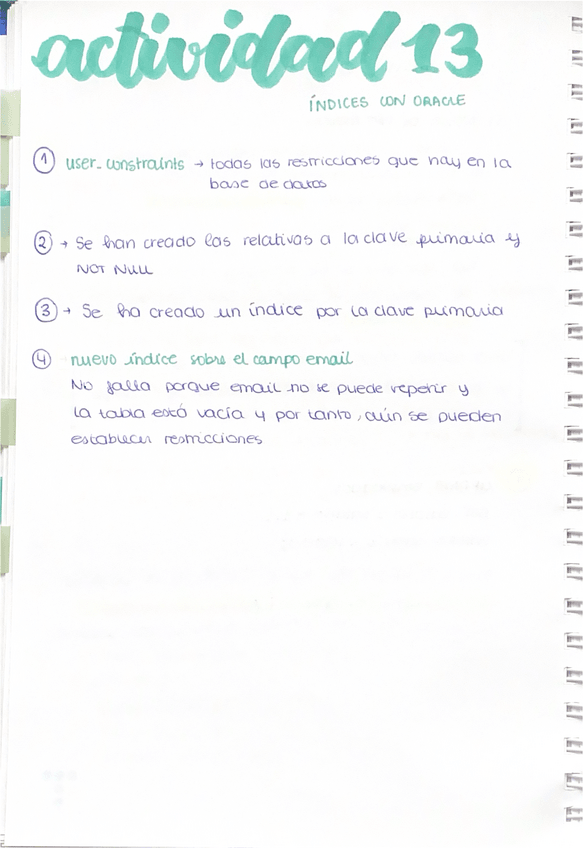 actividad 13
ÍNDICES CON ORACLE
① user_constraints → todas las restricciones que hay en la
base de datos
② → Se han creado las relativas a la clave primaria y
NOT NULL
③ → Se ha creado un índice por la clave primaria
④ nuevo índice sobre el campo email
No falla porque email no se puede repetir y
la tabla está vacía y por tanto, aún se pueden
establecer restricciones